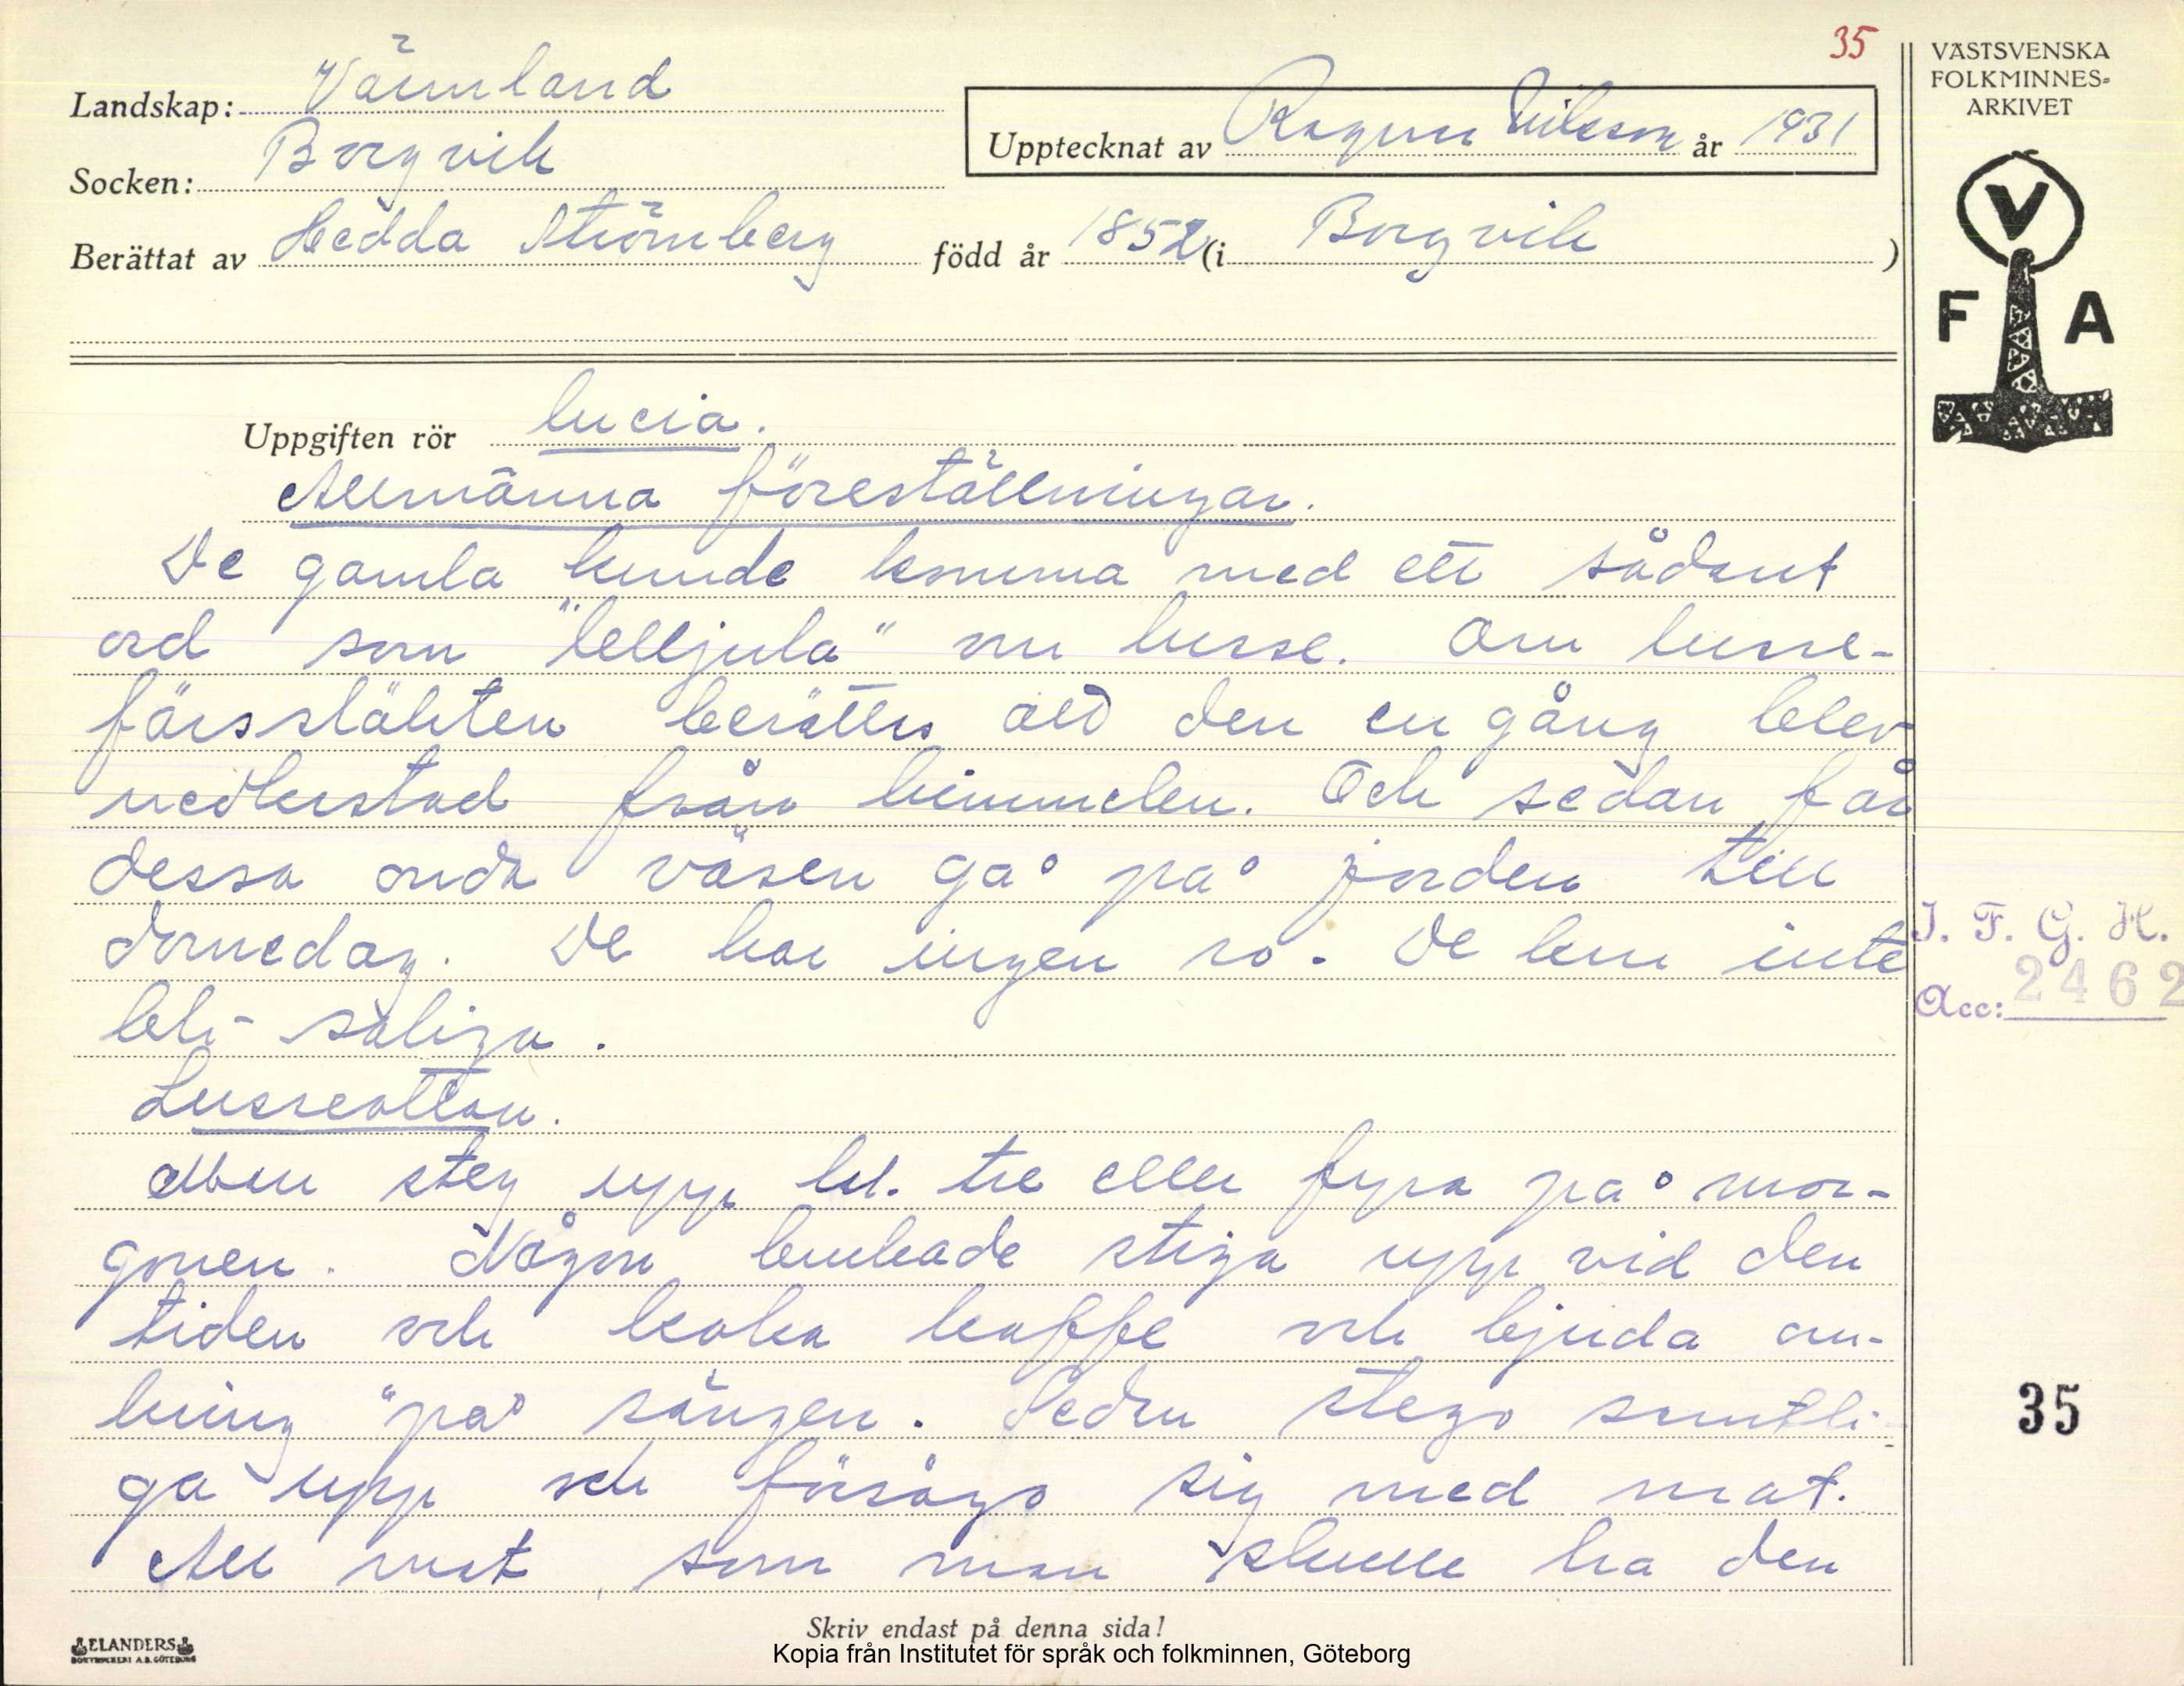 35
Landskap: Värmland
Socken: Borgvik
Berättat av Hedda Strömberg född år 1852 (i Borgvik )
Upptecknat av Ragnar Nilsson år 1931
VÄSTSVENSKA
FOLKMINNES-
ARKIVET
V
F A
Uppgiften rör lucia.
Allmänna föreställningar.
De gamla kunde komma med ett sådant
ord som "lelljula" om lusse. Om lusse-
färssläkten berättes att den en gång blev
nedkastad från himmelen. Och sedan får
dessa onda väsen gå på jorden till
domedag. De har ingen ro. De kan inte
bli saliga.
Lusseottan.
Man steg upp kl. tre eller fyra på mor-
gonen. Någon brukade stiga upp vid den
tiden och koka kaffe och bjuda om-
kring "på sängen. Sedan stego samtli-
ga upp och försågo sig med mat.
All mat som man skulle ha den
J. F. G. H.
Acc: 2462
35
Skriv endast på denna sida!
ELANDERS
BOKTRYCKERI A.B. GÖTEBORG
Kopia från Institutet för språk och folkminnen, Göteborg